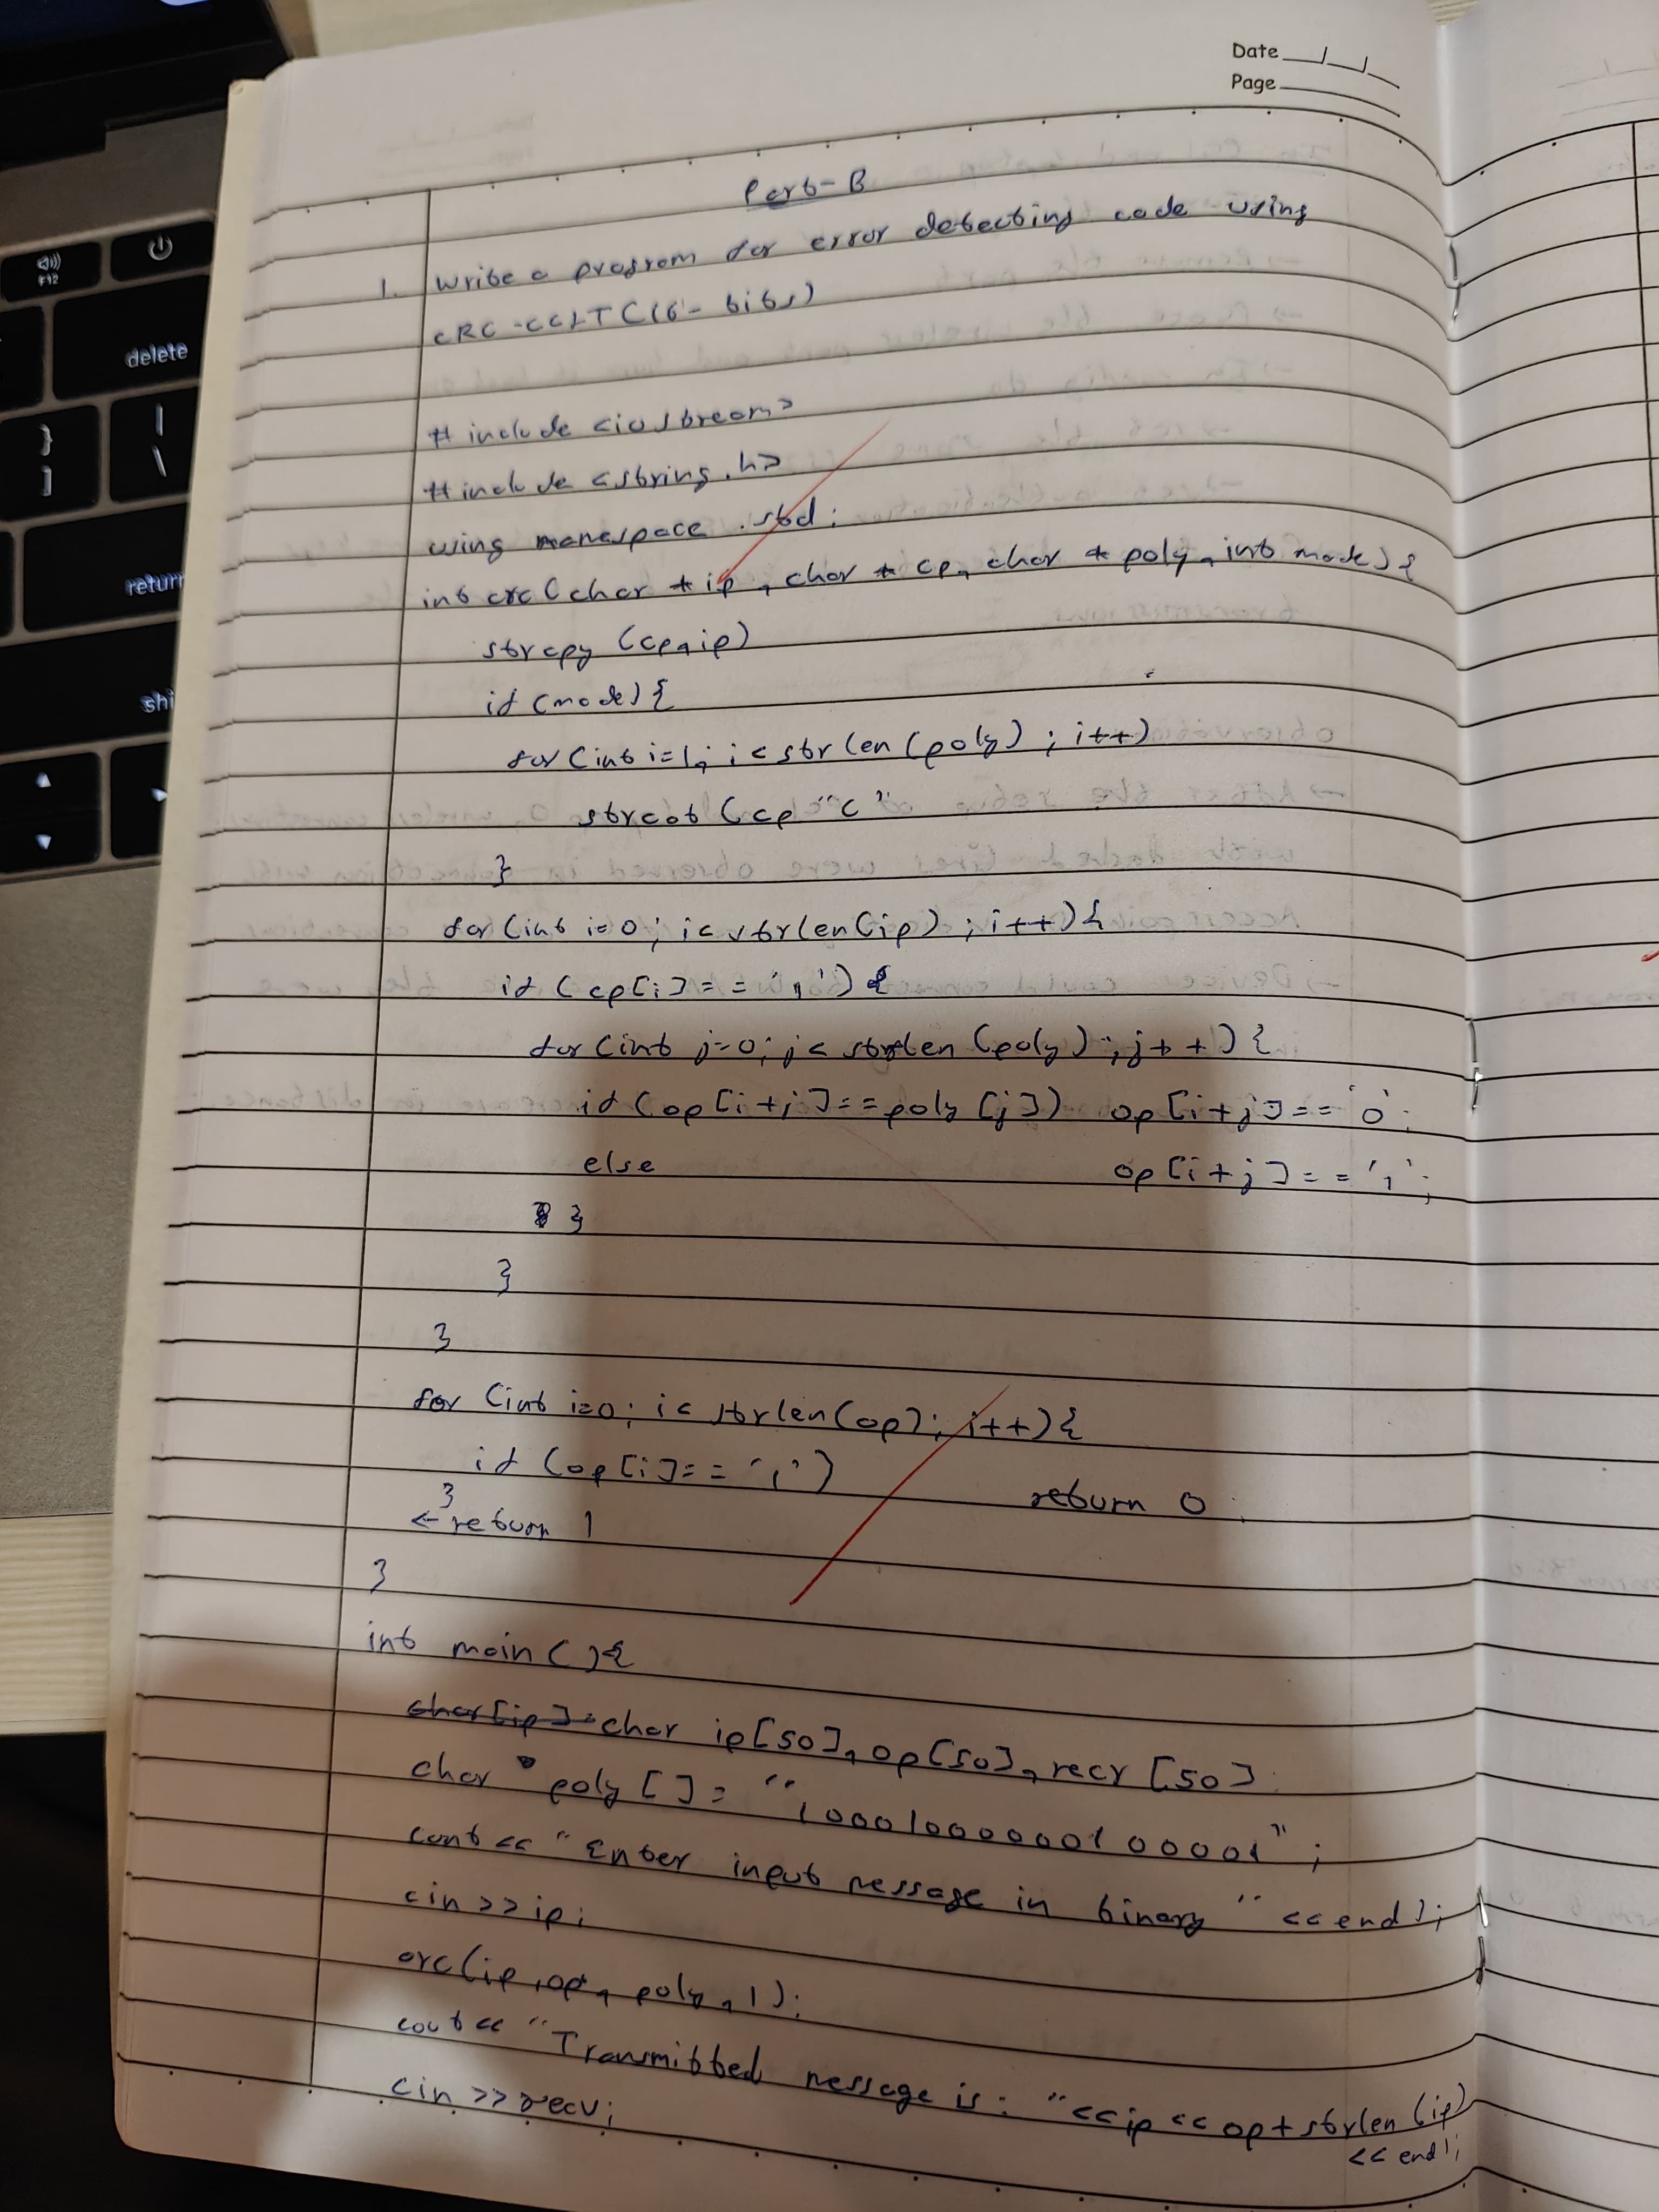 Date
Page
Part-B
1. Write a program for error detecting code using
CRC-CCITT (16-bits)
#include <iostream>
#include <string.h>
using namespace std;
int crc(char *ip, char *cp, char *poly, int mode){
strcpy (cp,ip)
if (mode){
for (int i=1; i<strlen(poly) ; i++)
strcat (cp "c"
}
for (int i=0; i< strlen(ip) ; i++){
if (cp[i]== '1') {
for (int j=0; j< strlen (poly) ; j++) {
if (op [i+j]==poly [j]) op[i+j]== '0';
else op [i+j]== '1';
}
}
}
for (int i=0; i< strlen(op); i++){
if (op[i]== '1') return 0;
}
← return 1
}
int main(){
char ip[50], op[50], recv [50]
char poly [] = "10001000000100001";
cout << "Enter input message in binary" <<endl;
cin>>ip;
crc(ip,op, poly,1);
cout << "Transmitted message is: "<<ip << op+strlen(ip)
<< endl;
cin >>recv;
F12
delete
}
]
|
\
return
shi